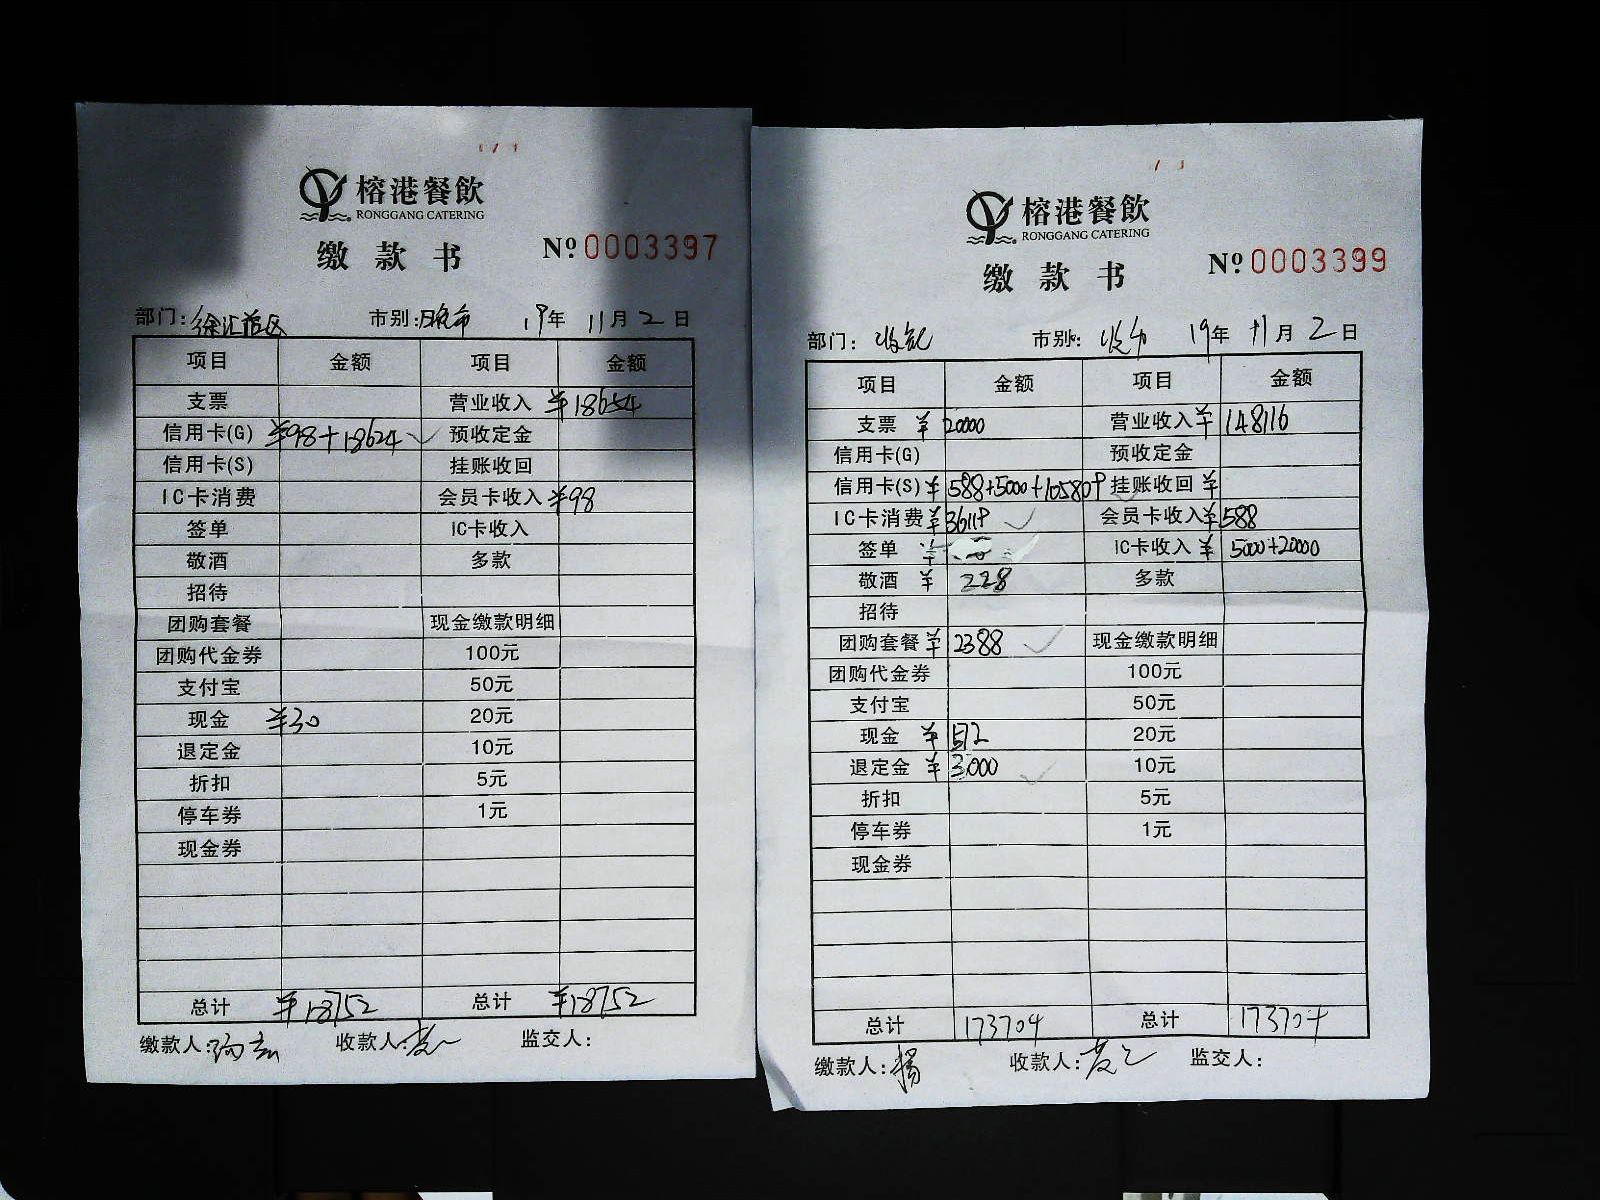 榕港餐飲
RONGGANG CATERING
缴款书
№ 0003397
部门: 市别: 19年 11月 2日
项目 金额 项目 金额
支票 营业收入 ¥18654
信用卡(G) ¥98+18624 预收定金
信用卡(S) 挂账收回
IC卡消费 会员卡收入 ¥98
签单 IC卡收入
敬酒 多款
招待
团购套餐 现金缴款明细
团购代金券 100元
支付宝 50元
现金 ¥30 20元
退定金 10元
折扣 5元
停车券 1元
现金券
总计 ¥18752 总计 ¥18752
缴款人: 收款人: 监交人:
榕港餐飲
RONGGANG CATERING
缴款书
№ 0003399
部门: 市别: 19年 11月 2日
项目 金额 项目 金额
支票 ¥20000 营业收入 ¥148116
信用卡(G) 预收定金
信用卡(S) ¥588+5000+105809 挂账收回 ¥
IC卡消费 ¥36119 会员卡收入 ¥588
签单 ¥ IC卡收入 ¥5000+20000
敬酒 ¥228 多款
招待
团购套餐 ¥2388 现金缴款明细
团购代金券 100元
支付宝 50元
现金 ¥572 20元
退定金 ¥3000 10元
折扣 5元
停车券 1元
现金券
总计 173704 总计 173704
缴款人:杨 收款人: 监交人: